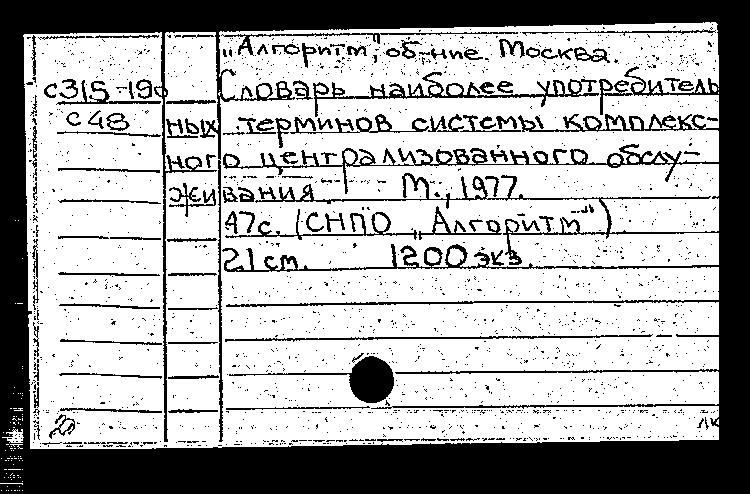 „Алгоритм", об-ние. Москва.
с315-190 Словарь наиболее употребитель
с48 ных терминов системы комплекс-
ного централизованного обслу-
живания. М., 1977.
47с. (СНПО „Алгоритм")
21 см. 1200 экз.
лк